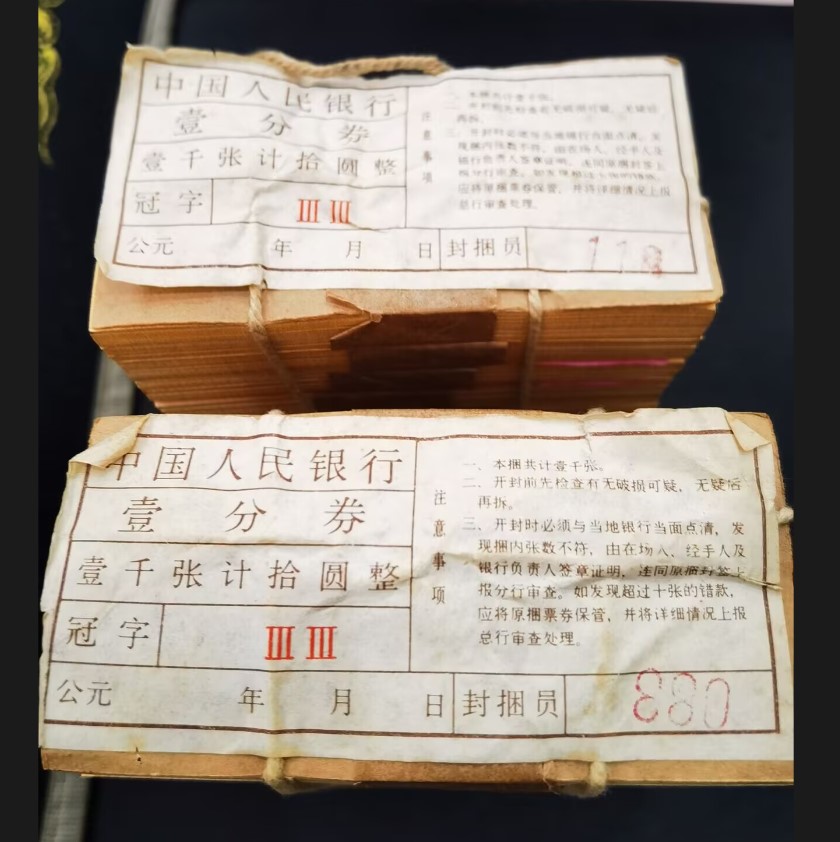 中国人民银行
壹分券
壹千张计拾圆整
冠字 III III
公元 年 月 日 封捆员 118
注意事项
一、本捆共计壹千张。
二、开封前先检查有无破损可疑，无疑后
再拆。
三、开封时必须与当地银行当面点清，发
现捆内张数不符，由在场人、经手人及
银行负责人签章证明，连同原捆封签上
报分行审查。如发现超过十张的错款，
应将原捆票券保管，并将详细情况上报
总行审查处理。
中国人民银行
壹分券
壹千张计拾圆整
冠字 III III
公元 年 月 日 封捆员 080
注意事项
一、本捆共计壹千张。
二、开封前先检查有无破损可疑，无疑后
再拆。
三、开封时必须与当地银行当面点清，发
现捆内张数不符，由在场人、经手人及
银行负责人签章证明，连同原捆封签上
报分行审查。如发现超过十张的错款，
应将原捆票券保管，并将详细情况上报
总行审查处理。